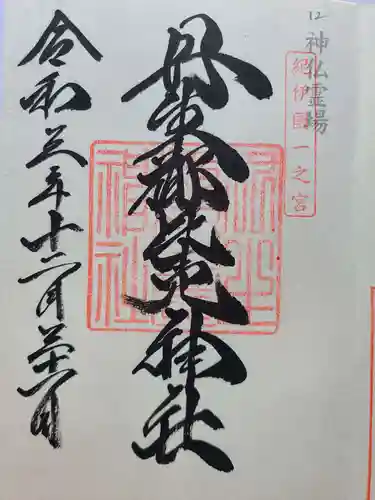 12 神仏霊場
紀伊國一之宮
丹生都比売神社
令和三年十二月廿一日